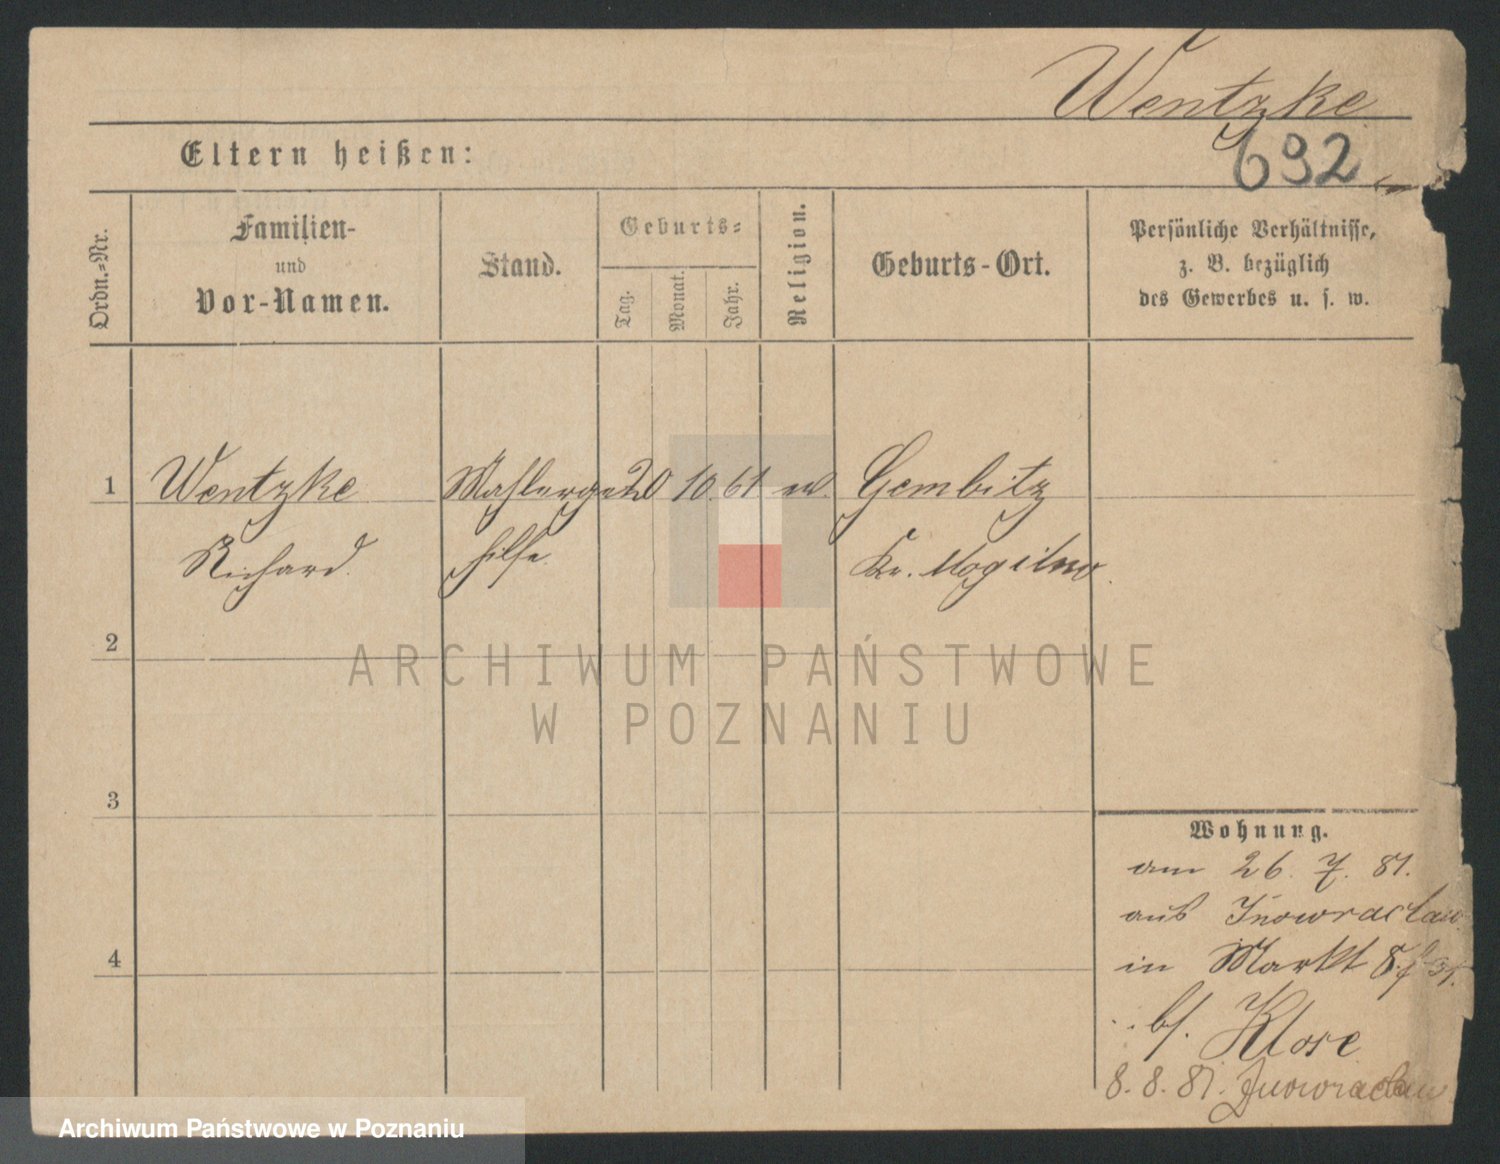 Wentzke
692
Eltern heißen:
Ordn.-Nr.
Familien-
und
Vor-Namen.
Stand.
Geburts-
Tag.
Monat.
Jahr.
Religion.
Geburts-Ort.
Persönliche Verhältnisse,
z. B. bezüglich
des Gewerbes u. s. w.
1 Wentzke Mahlerge 20 10 61 ev. Gembitz
Richard hilfe Kr. Mogilno.
2
ARCHIWUM PAŃSTWOWE
W POZNANIU
3
Wohnung.
am 26. 7. 81.
aus Inowraclaw
in Markt 8.
4
bf. Klose
8. 8. 81. Inowraclaw
Archiwum Państwowe w Poznaniu